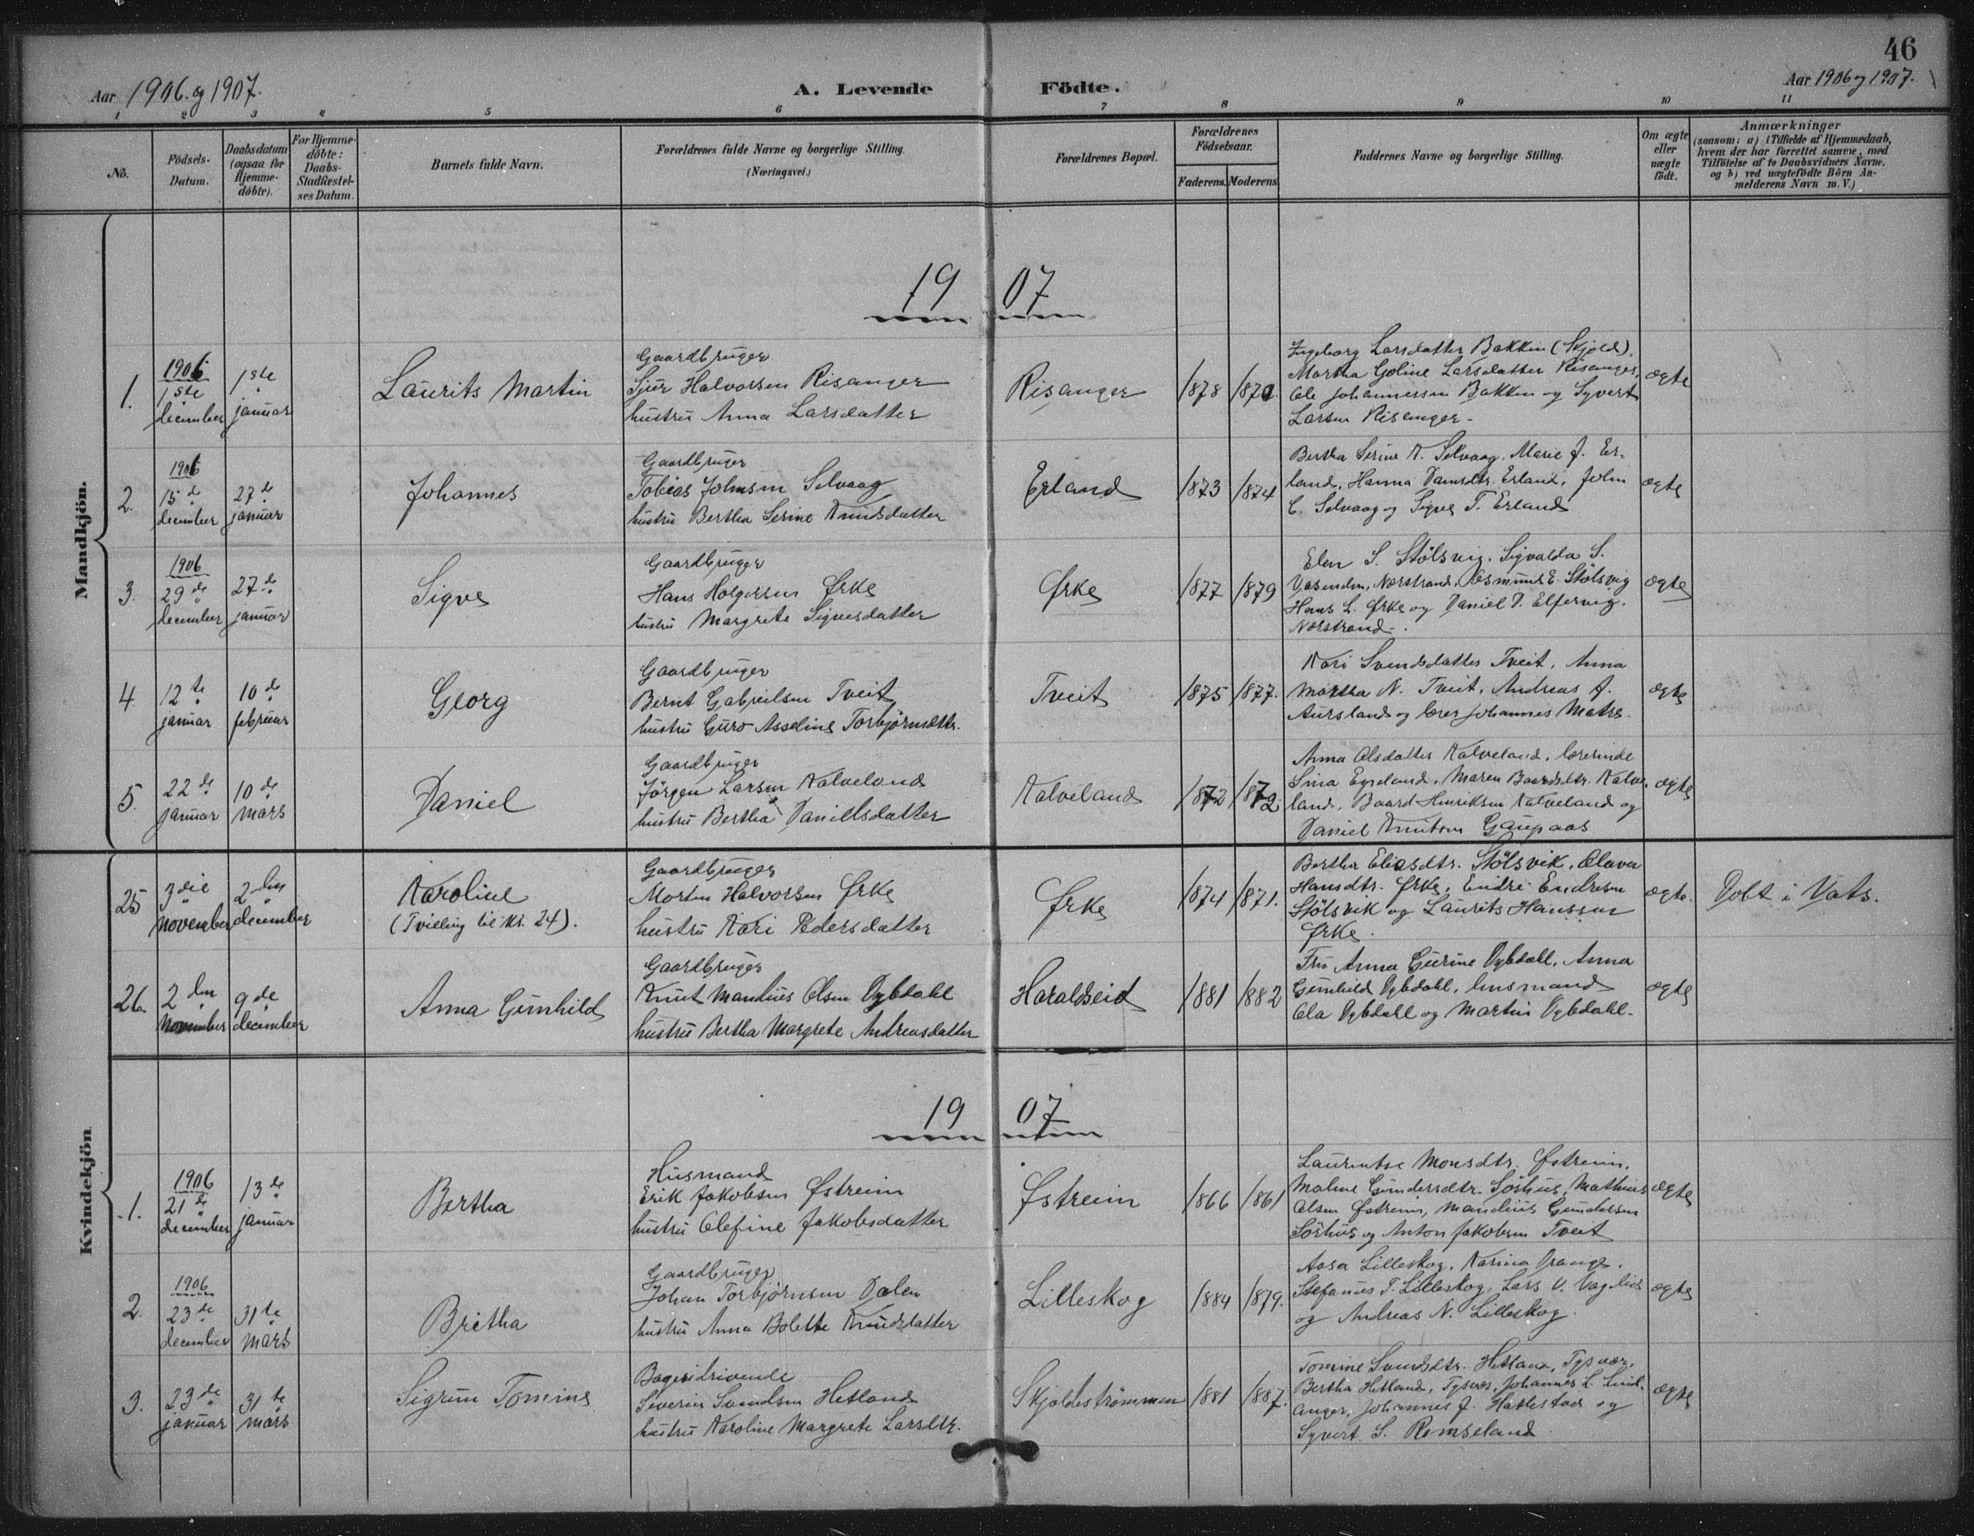 46
Aar 1906 og 1907.
A. Levende Födte.
Aar 1906 og 1907.
1 2 3 4 5 6 7 8 9 10 11
No.
Födsels-
Datum.
Daabsdatum
(ogsaa for
Hjemme-
döbte).
For Hjemme-
döbte:
Daabs-
Stadfæstel-
ses Datum.
Barnets fulde Navn.
Forældrenes fulde Navne og borgerlige Stilling.
(Næringsvei.)
Forældrenes Bopæl.
Forældrenes
Födselsaar.
Faderens. Moderens
Faddernes Navne og borgerlige Stilling.
Om ægte
eller
uægte
födt.
Anmærkninger
(saasom: a) i Tilfælde af Hjemmedaab,
hvem der har forrettet samme, med
Tilföielse af to Daabsvidners Navne,
og b) ved uægtefödte Börn An-
melderens Navn m. V.)
Mandkjön.
1907
1.
1906
15de
december
1ste
januar
Laurits Martin
Gaardbruger
Sjur Halvorsen Risanger
hustru Anna Larsdatter
Risanger
1878
Ingeborg Larsdatter Bakken (Skjold),
Martha Goline Larsdatter Risanger,
Ole Johannessen Bakken og Syvert
Larsen Risanger.
ægte
2.
1906
15de
december
27de
januar
Johannes
Gaardbruger
Tobias Johnsen Selvaag
hustru Bertha Serine Knudsdatter
Erland
1873 1874
Bertha Serine K. Selvaag, Marie J. Er-
land, Hanna Erland, John
Selvaag og Sigve T. Erland
ægte
3.
1906
29de
december
27de
januar
Sigve
Gaardbruger
Hans Holgersen Ørke
hustru Margrete Sigvesdatter
Ørke
1877 1879
Elen S. Stölsvig, Sigvalda S.
Nærstrand, Rasmus E. Stölsvig
Hans L. Ørke og Daniel D.
Nærstrand.
ægte
4
12te
januar
10de
februar
Georg
Gaardbruger
Bernt Gabrielsen Tveit
hustru Guro Asseline Torbjørnsdttr.
Tveit
1875 1877.
Kari Svendsdatter Tveit, Anna
Martha N. Tveit, Andreas A.
Aursland og lærer Johannes Matre.
ægte
5.
22de
januar
10de
mars
Daniel
Gaardbruger
Jörgen Larsen Kalveland
hustru Bertha Danielsdatter
Kalveland
1872 1872
Anna Olsdatter Kalveland, lærerinde
Sina Egeland, Maren Baardsdtr. Kalve-
land, Baard Henriksen Kalveland og
Daniel Knutsen Gaupaas
ægte
25
3die
november
2den
december
Karoline
(Tvilling til Nr. 24).
Gaardbruger
Morten Halvorsen Ørke
hustru Kari Pedersdatter
Ørke
1874 1871.
Bertha Eliasdtr. Stölsvik, Olava
Hansdtr. Ørke, Endre Endresen
Stölsvik og Laurits Hanssen
Ørke.
ægte.
Døbt i Vats.
26.
2den
November
9de
december
Anna Gunhild
Gaardbruger
Knut Mandius Olsen Dybdahl
hustru Bertha Margrete Andreasdatter
Haraldseid
1881 1882
Fru Anna Gurine Dybdahl, Anna
Gunhild Dybdahl, lensmand
Ola Dybdahl og Martin Dybdahl.
ægte
Kvindekjön
1907
1.
1906
21de
december
13de
januar
Bertha
Husmand
Erik Jakobsen Østreim
hustru Olefine Jakobsdatter
Østreim
1866 1861
Laurentse Monsdtr. Østreim,
Maline Gundersdtr. Sörhus, Mathias
Olsen Østreim, Mandius Gundersen
Sörhus og Anton Jakobsen Tveit
ægte
2.
1906
23de
december
31te
mars
Bretha
Gaardbruger
Johan Torbjørnsen Dalen
hustru Anna Bolette Knudsdatter
Lilleskog
1884 1879.
Aasa Lilleskog, Karina Drange,
Stefanus T. Lilleskog, Lars V. Vaglid
og Andreas N. Lilleskog.
ægte
3.
23de
januar
31te
mars
Sigrun Tomine
Bageridrivende
Severin Svendsen Hetland
hustru Karoline Margrete Larsdtr.
Skjoldestrømmen
1881 1887.
Tomine Svendsdtr. Hetland, Tysvær,
Bertha Hetland, Tysvær, Johannes L. Lind-
anger, Johannes J. Hattestad og
Syvert S. Romseland
ægte